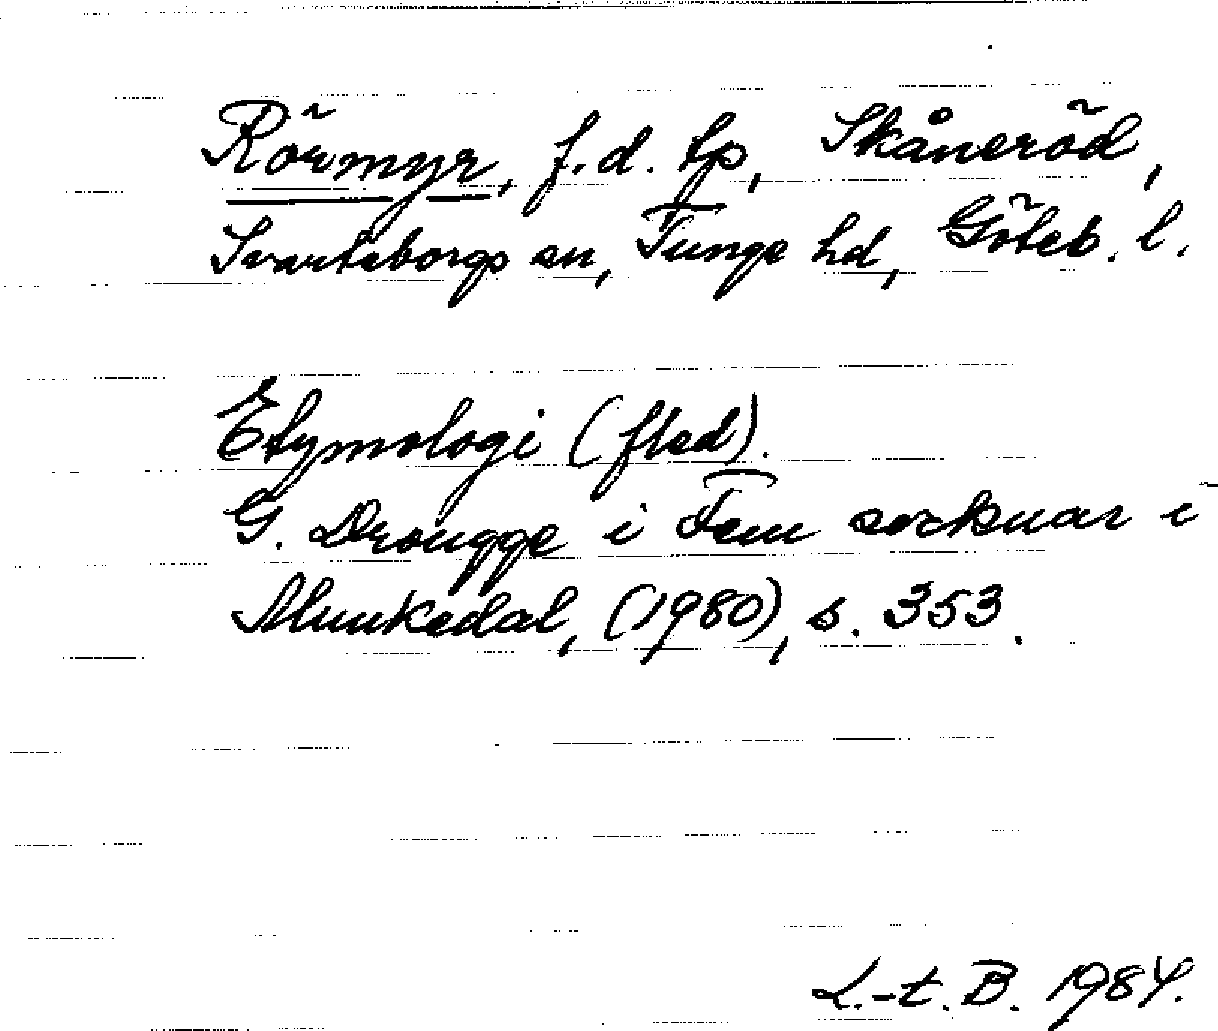 Rörmyr, f.d. tp, Skåneröd,
Svarteborgs sn, Tunge hd, Göteb. l.
Etymologi (fled).
G. Drougge i Fem socknar i
Munkedal, (1980), s. 353.
L.-t. B. 1984.